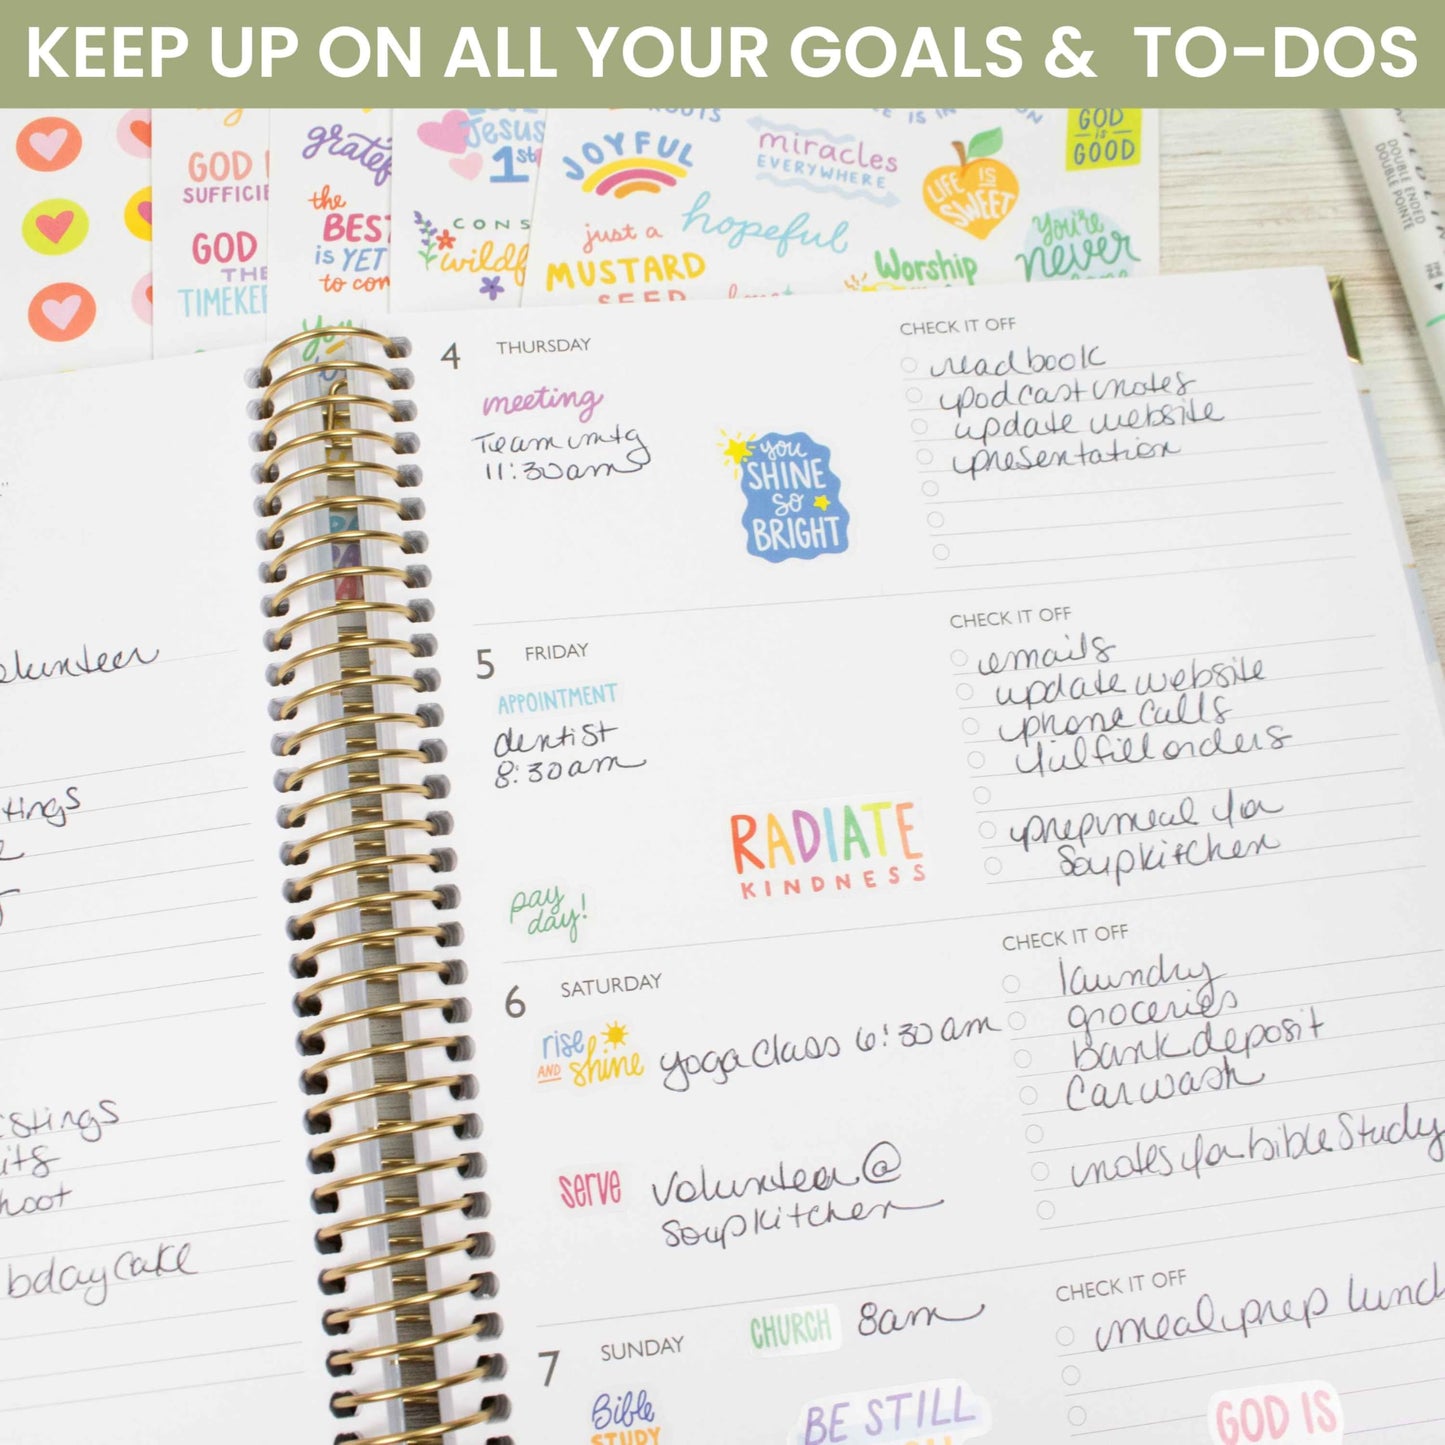 KEEP UP ON ALL YOUR GOALS & TO-DOS
GOD
SUFFICIE
GOD
THE
TIMEKEE
grateful
the
BEST
is YET
to com
Jesus
1st
CONS
wildf
JOYFUL
just a
hopeful
MUSTARD
SEED
miracles
EVERYWHERE
LIFE IS
SWEET
Worship
GOD
is
GOOD
You're
never
DOUBLE ENDED
DOUBLE POINTE
4 THURSDAY
meeting
Team mtg
11:30am
you
SHINE
so
BRIGHT
CHECK IT OFF
read book
podcast notes
update website
presentation
5 FRIDAY
APPOINTMENT
dentist
8:30am
pay
day!
RADIATE
KINDNESS
CHECK IT OFF
emails
update website
phone calls
fulfill orders
prep meal for
soup kitchen
6 SATURDAY
rise
AND shine
yoga class 6:30am
serve
volunteer @
soup kitchen
CHECK IT OFF
laundry
groceries
bank deposit
car wash
notes for bible study
7 SUNDAY
CHURCH 8am
Bible
STUDY
BE STILL
CHECK IT OFF
meal prep lunch
GOD IS
olunteer
tings
istings
its
hoot
bday cake